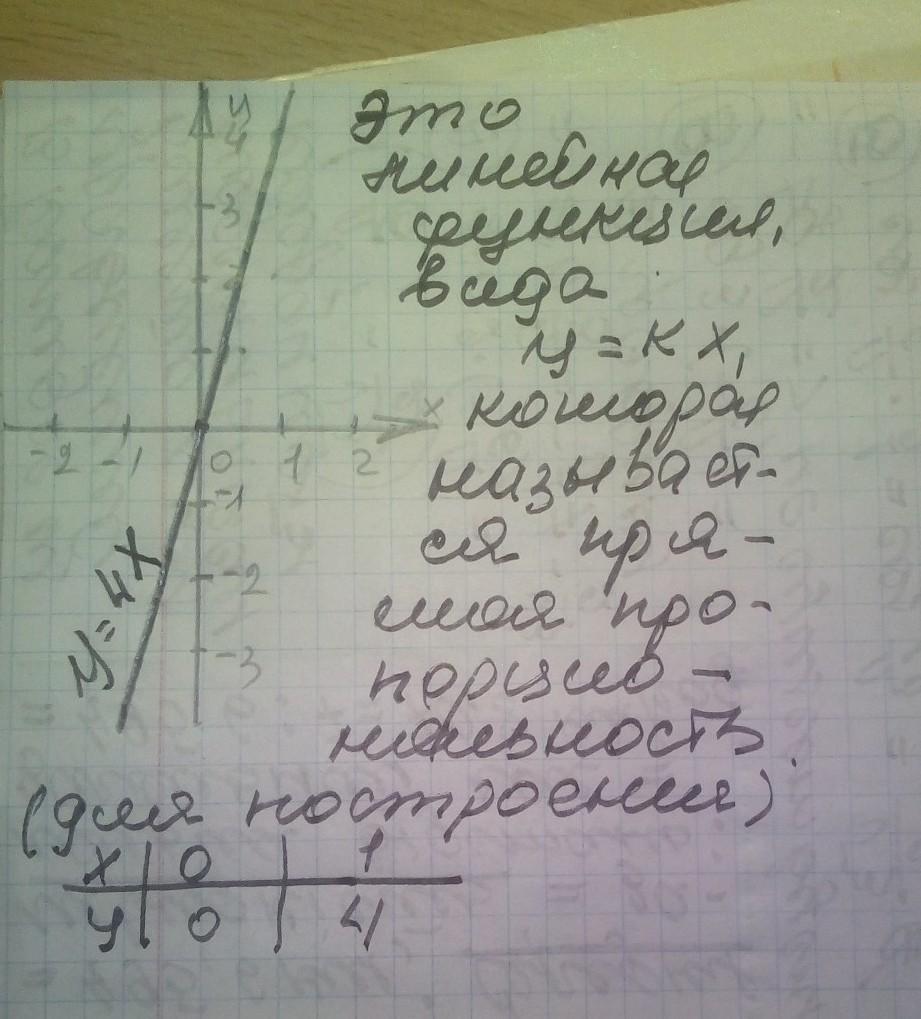 y
4
3
2
x
-2 -1 0 1 2
-1
-2
-3
y=4x
Это
линейная
функция,
вида
y = кx,
которая
называет-
ся пря-
мая про-
порцио-
нальность
(для построения)
x | 0 | 1
y | 0 | 4